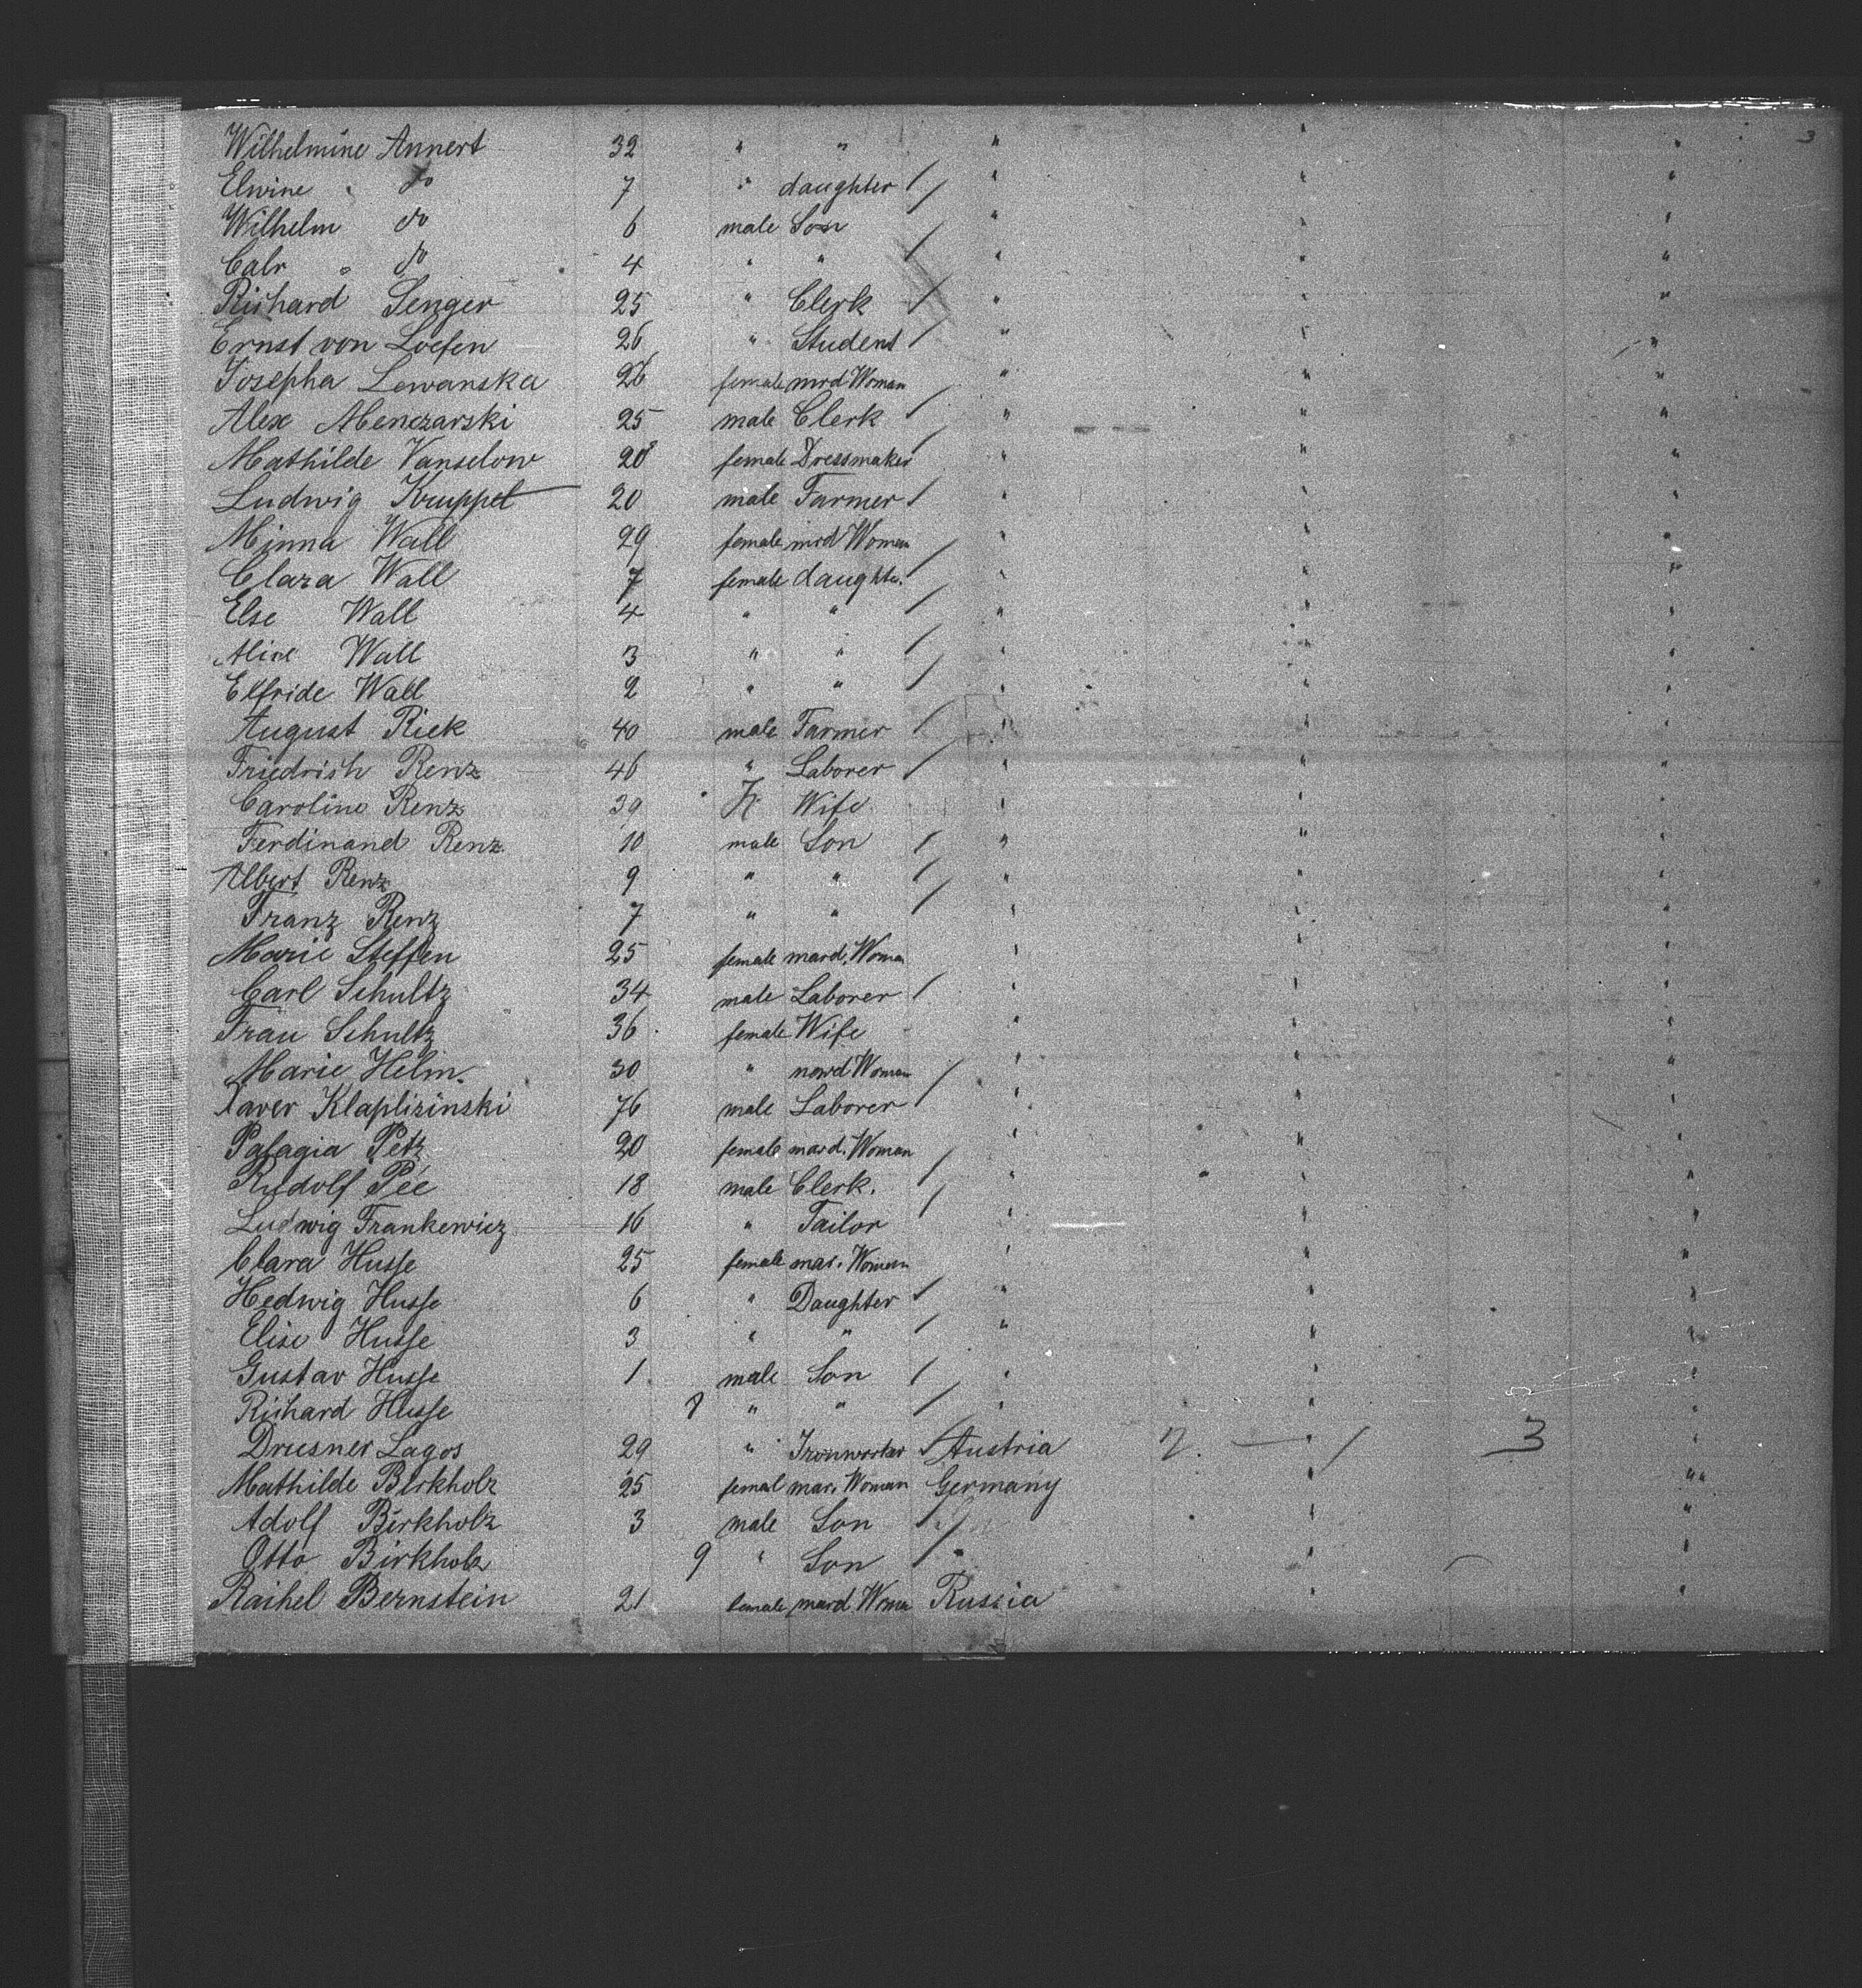 3
Wilhelmine Annert 32 " " " " "
Elwine " do 7 " daughter / " " "
Wilhelm do 6 male Son / " " "
Calr " do 4 " " / " " "
Richard Senger 25 " Clerk / " " "
Ernst von Loefen 26 " Student / " " "
Josepha Lewanska 26 female mrd Woman " " "
Alex Menczarski 25 male Clerk / " " "
Mathilde Vanselow 20 female Dressmaker / " " "
Ludwig Kruppel 20 male Farmer / " " "
Minna Wall 29 female mrd Woman " " "
Clara Wall 7 female daughte. / " " "
Else Wall 4 " " / " " "
Aline Wall 3 " " / " " "
Elfride Wall 2 " " / " " "
August Riek 40 male Farmer / " " "
Friedrish Renz 46 " Laborer / " " "
Caroline Renz 39 Wife " " "
Ferdinand Renz 10 male Son / " " "
Albert Renz 9 " " / " " "
Franz Renz 7 " " / " " "
Marie Steffen 25 female mard. Woman " " "
Carl Schultz 34 male Laborer / " " "
Frau Schultz 36 female Wife " " "
Marie Helm. 30 " mard Woman " " "
Xaver Klaplizinski 76 male Laborer / " " "
Palagia Petz 20 female mard. Woman " " "
Rudolf Pée 18 male Clerk. / " " "
Ludwig Frankewicz 16 " Tailor / " " "
Clara Husse 25 female mar. Woman " " "
Hedwig Husse 6 " Daughter / " " "
Elise Husse 3 " " / " " "
Gustav Husse 1 male Son / " " "
Richard Husse 8 " " / " " "
Drusner Lagos 29 " Ironworker / Austria " / 3 "
Mathilde Birkholz 25 femal mar. Woman Germany " "
Adolf Birkholz 3 male Son / " " "
Otto Birkholz 9 " Son / " " "
Raihel Bernstein 21 female mard Woman Russia " "